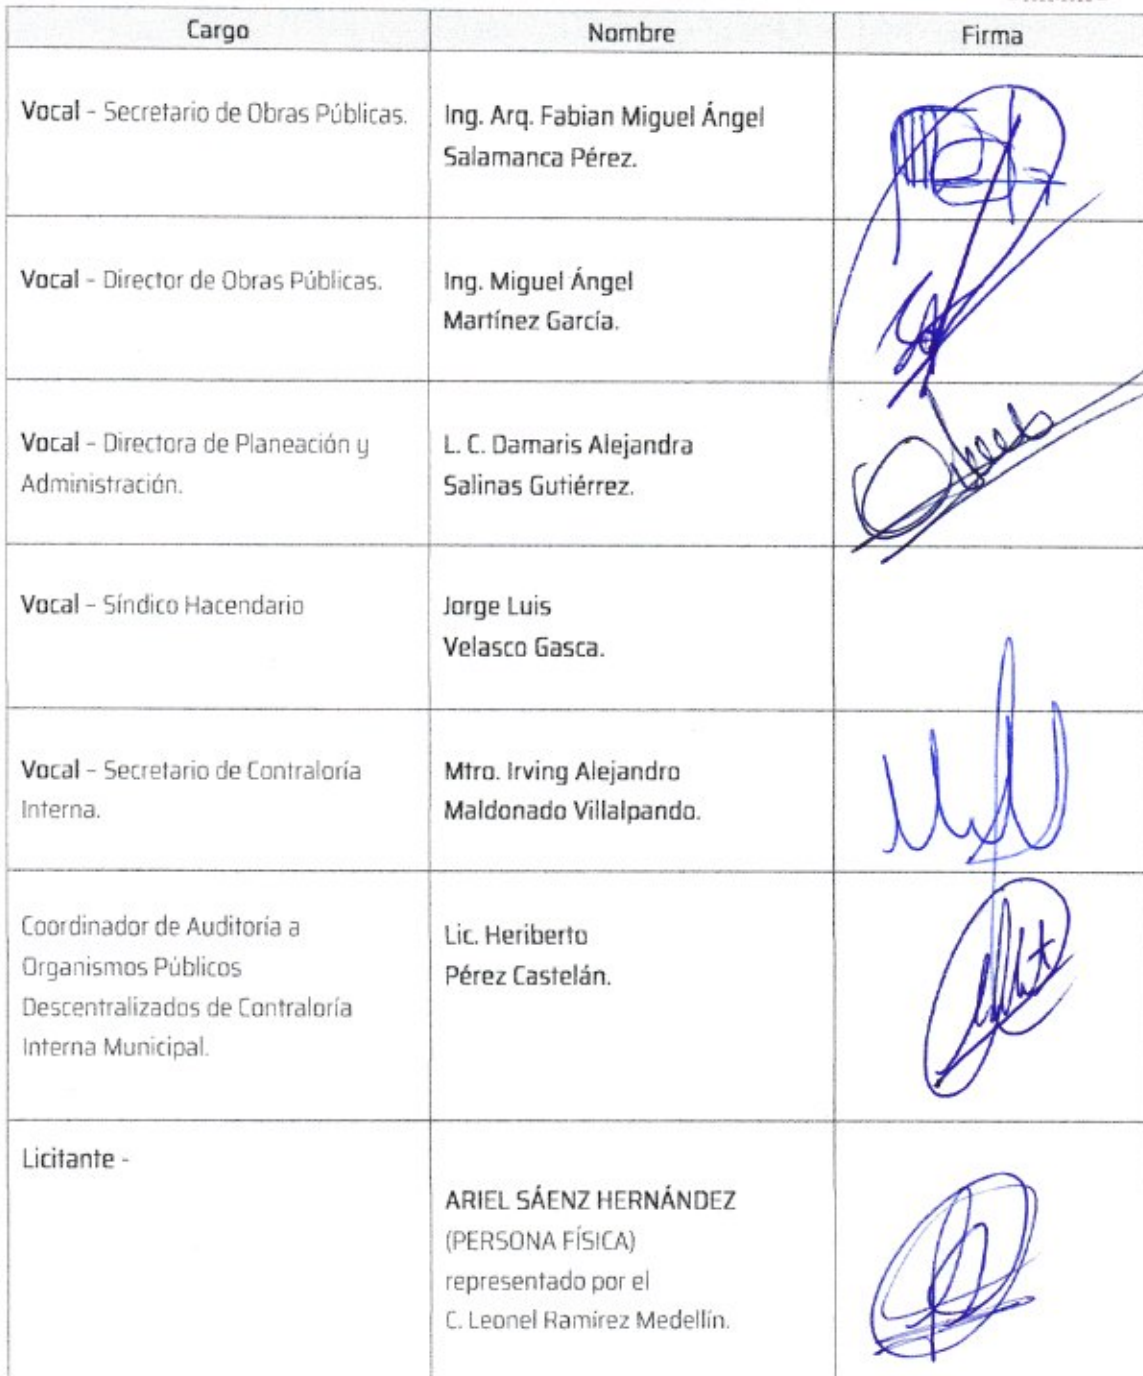 Cargo Nombre Firma
Vocal - Secretario de Obras Públicas. Ing. Arq. Fabian Miguel Ángel
Salamanca Pérez.
Vocal - Director de Obras Públicas. Ing. Miguel Ángel
Martínez García.
Vocal - Directora de Planeación y L. C. Damaris Alejandra
Administración. Salinas Gutiérrez.
Vocal - Síndico Hacendario Jorge Luis
Velasco Gasca.
Vocal - Secretario de Contraloría Mtro. Irving Alejandro
Interna. Maldonado Villalpando.
Coordinador de Auditoría a
Organismos Públicos
Descentralizados de Contraloría
Interna Municipal.
Lic. Heriberto
Pérez Castelán.
Licitante -
ARIEL SÁENZ HERNÁNDEZ
(PERSONA FÍSICA)
representado por el
C. Leonel Ramírez Medellín.